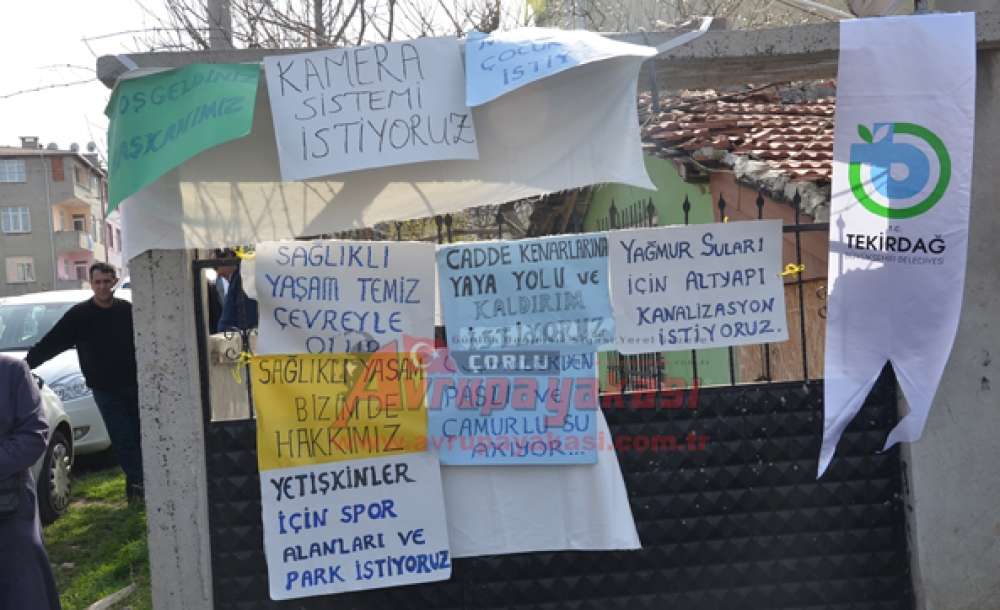 OŞGELDİNİZ
BAŞKANIMIZ
KAMERA
SİSTEMİ
İSTİYORUZ
ÇOCUK
İSTİY
SAĞLIKLI
YAŞAM TEMİZ
ÇEVREYLE
CADDE KENARLARINA
YAYA YOLU VE
KALDIRIM
İSTİYORUZ
YAĞMUR SULARI
İÇİN ALTYAPI
KANALİZASYON
İSTİYORUZ.
SAĞLIKLI YAŞAM
BİZİM DE
HAKKIMIZ
PASLI VE
ÇAMURLU SU
AKIYOR...
YETİŞKİNLER
İÇİN SPOR
ALANLARI VE
PARK İSTİYORUZ
T.C.
TEKİRDAĞ
BÜYÜKŞEHİR BELEDİYESİ
ÇORLU
Avrupayakası
www.avrupayakasi.com.tr